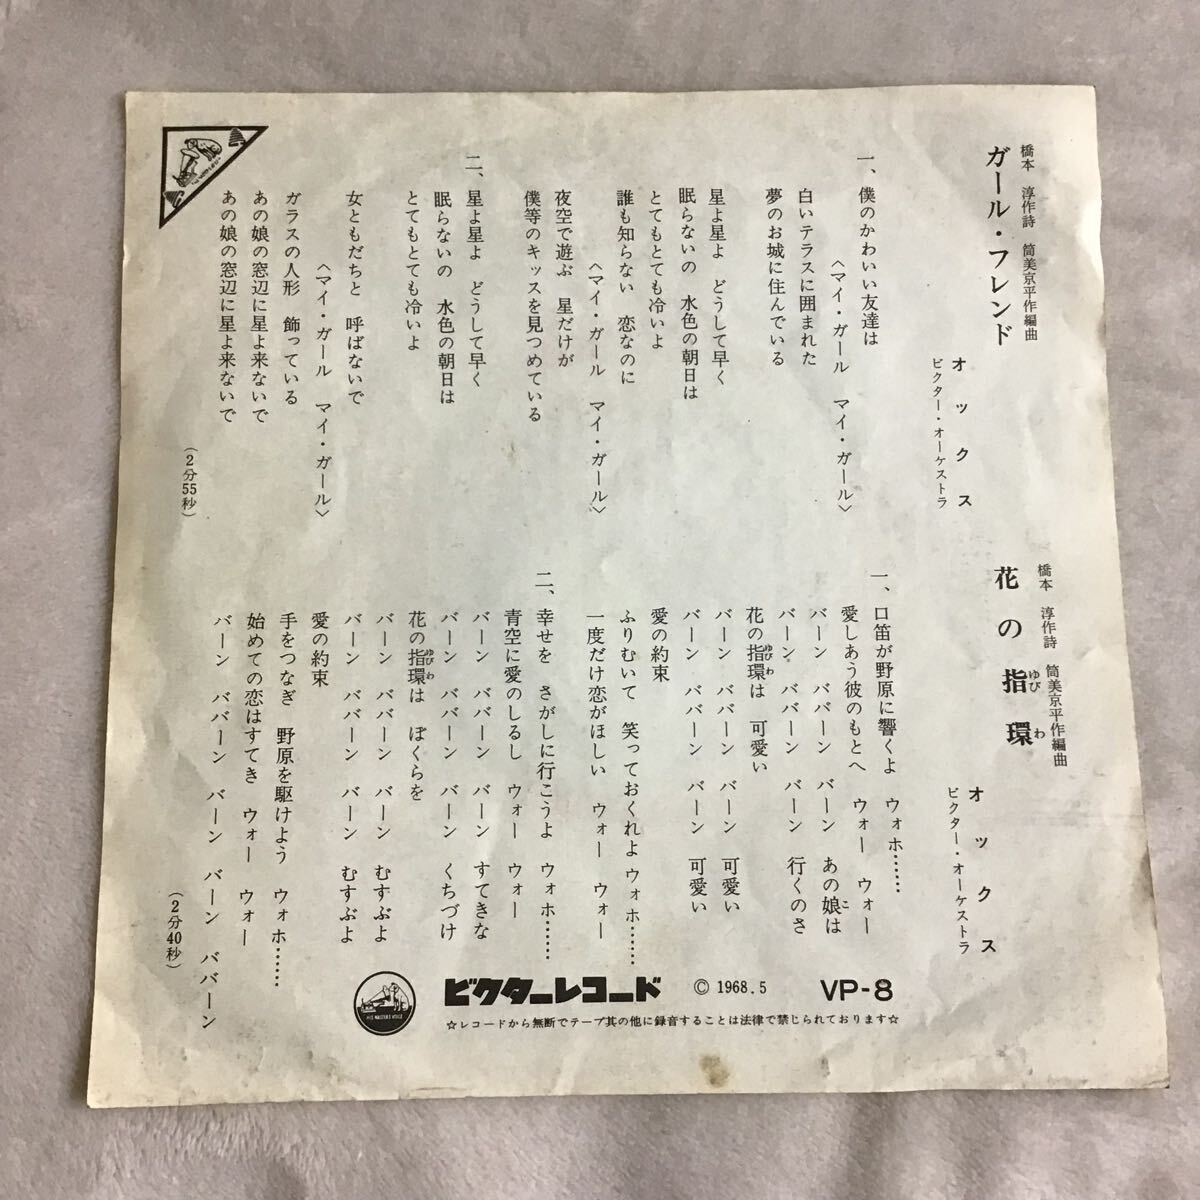 橋本 淳作詩 筒美京平作編曲
ガール・フレンド
オックス
ビクター・オーケストラ
一、僕のかわいい友達は
〈マイ・ガール マイ・ガール〉
白いテラスに囲まれた
夢のお城に住んでいる
星よ星よ どうして早く
眠らないの 水色の朝日は
とてもとても冷いよ
誰も知らない 恋なのに
〈マイ・ガール マイ・ガール〉
夜空で遊ぶ 星だけが
僕等のキッスを見つめている
二、星よ星よ どうして早く
眠らないの 水色の朝日は
とてもとても冷いよ
女ともだちと 呼ばないで
〈マイ・ガール マイ・ガール〉
ガラスの人形 飾っている
あの娘の窓辺に星よ来ないで
あの娘の窓辺に星よ来ないで
(2分55秒)
橋本 淳作詩 筒美京平作編曲
花の指環
ゆびわ
オックス
ビクター・オーケストラ
一、口笛が野原に響くよ ウォホ……
愛しあう彼のもとへ ウォー ウォー
バーン ババーン バーン あの娘は
こ
バーン ババーン バーン 行くのさ
花の指環は 可愛い
ゆびわ
バーン ババーン バーン 可愛い
バーン ババーン バーン 可愛い
愛の約束
ふりむいて 笑っておくれよ ウォホ……
一度だけ恋がほしい ウォー ウォー
二、幸せを さがしに行こうよ ウォホ……
青空に愛のしるし ウォー ウォー
バーン ババーン バーン すてきな
バーン ババーン バーン くちづけ
花の指環は ぼくらを
ゆびわ
バーン ババーン バーン むすぶよ
バーン ババーン バーン むすぶよ
愛の約束
手をつなぎ 野原を駆けよう ウォホ……
始めての恋はすてき ウォー ウォー
バーン ババーン バーン バーン ババーン
(2分40秒)
HIS MASTER'S VOICE
ビクターレコード © 1968.5 VP-8
☆レコードから無断でテープ其の他に録音することは法律で禁じられております☆